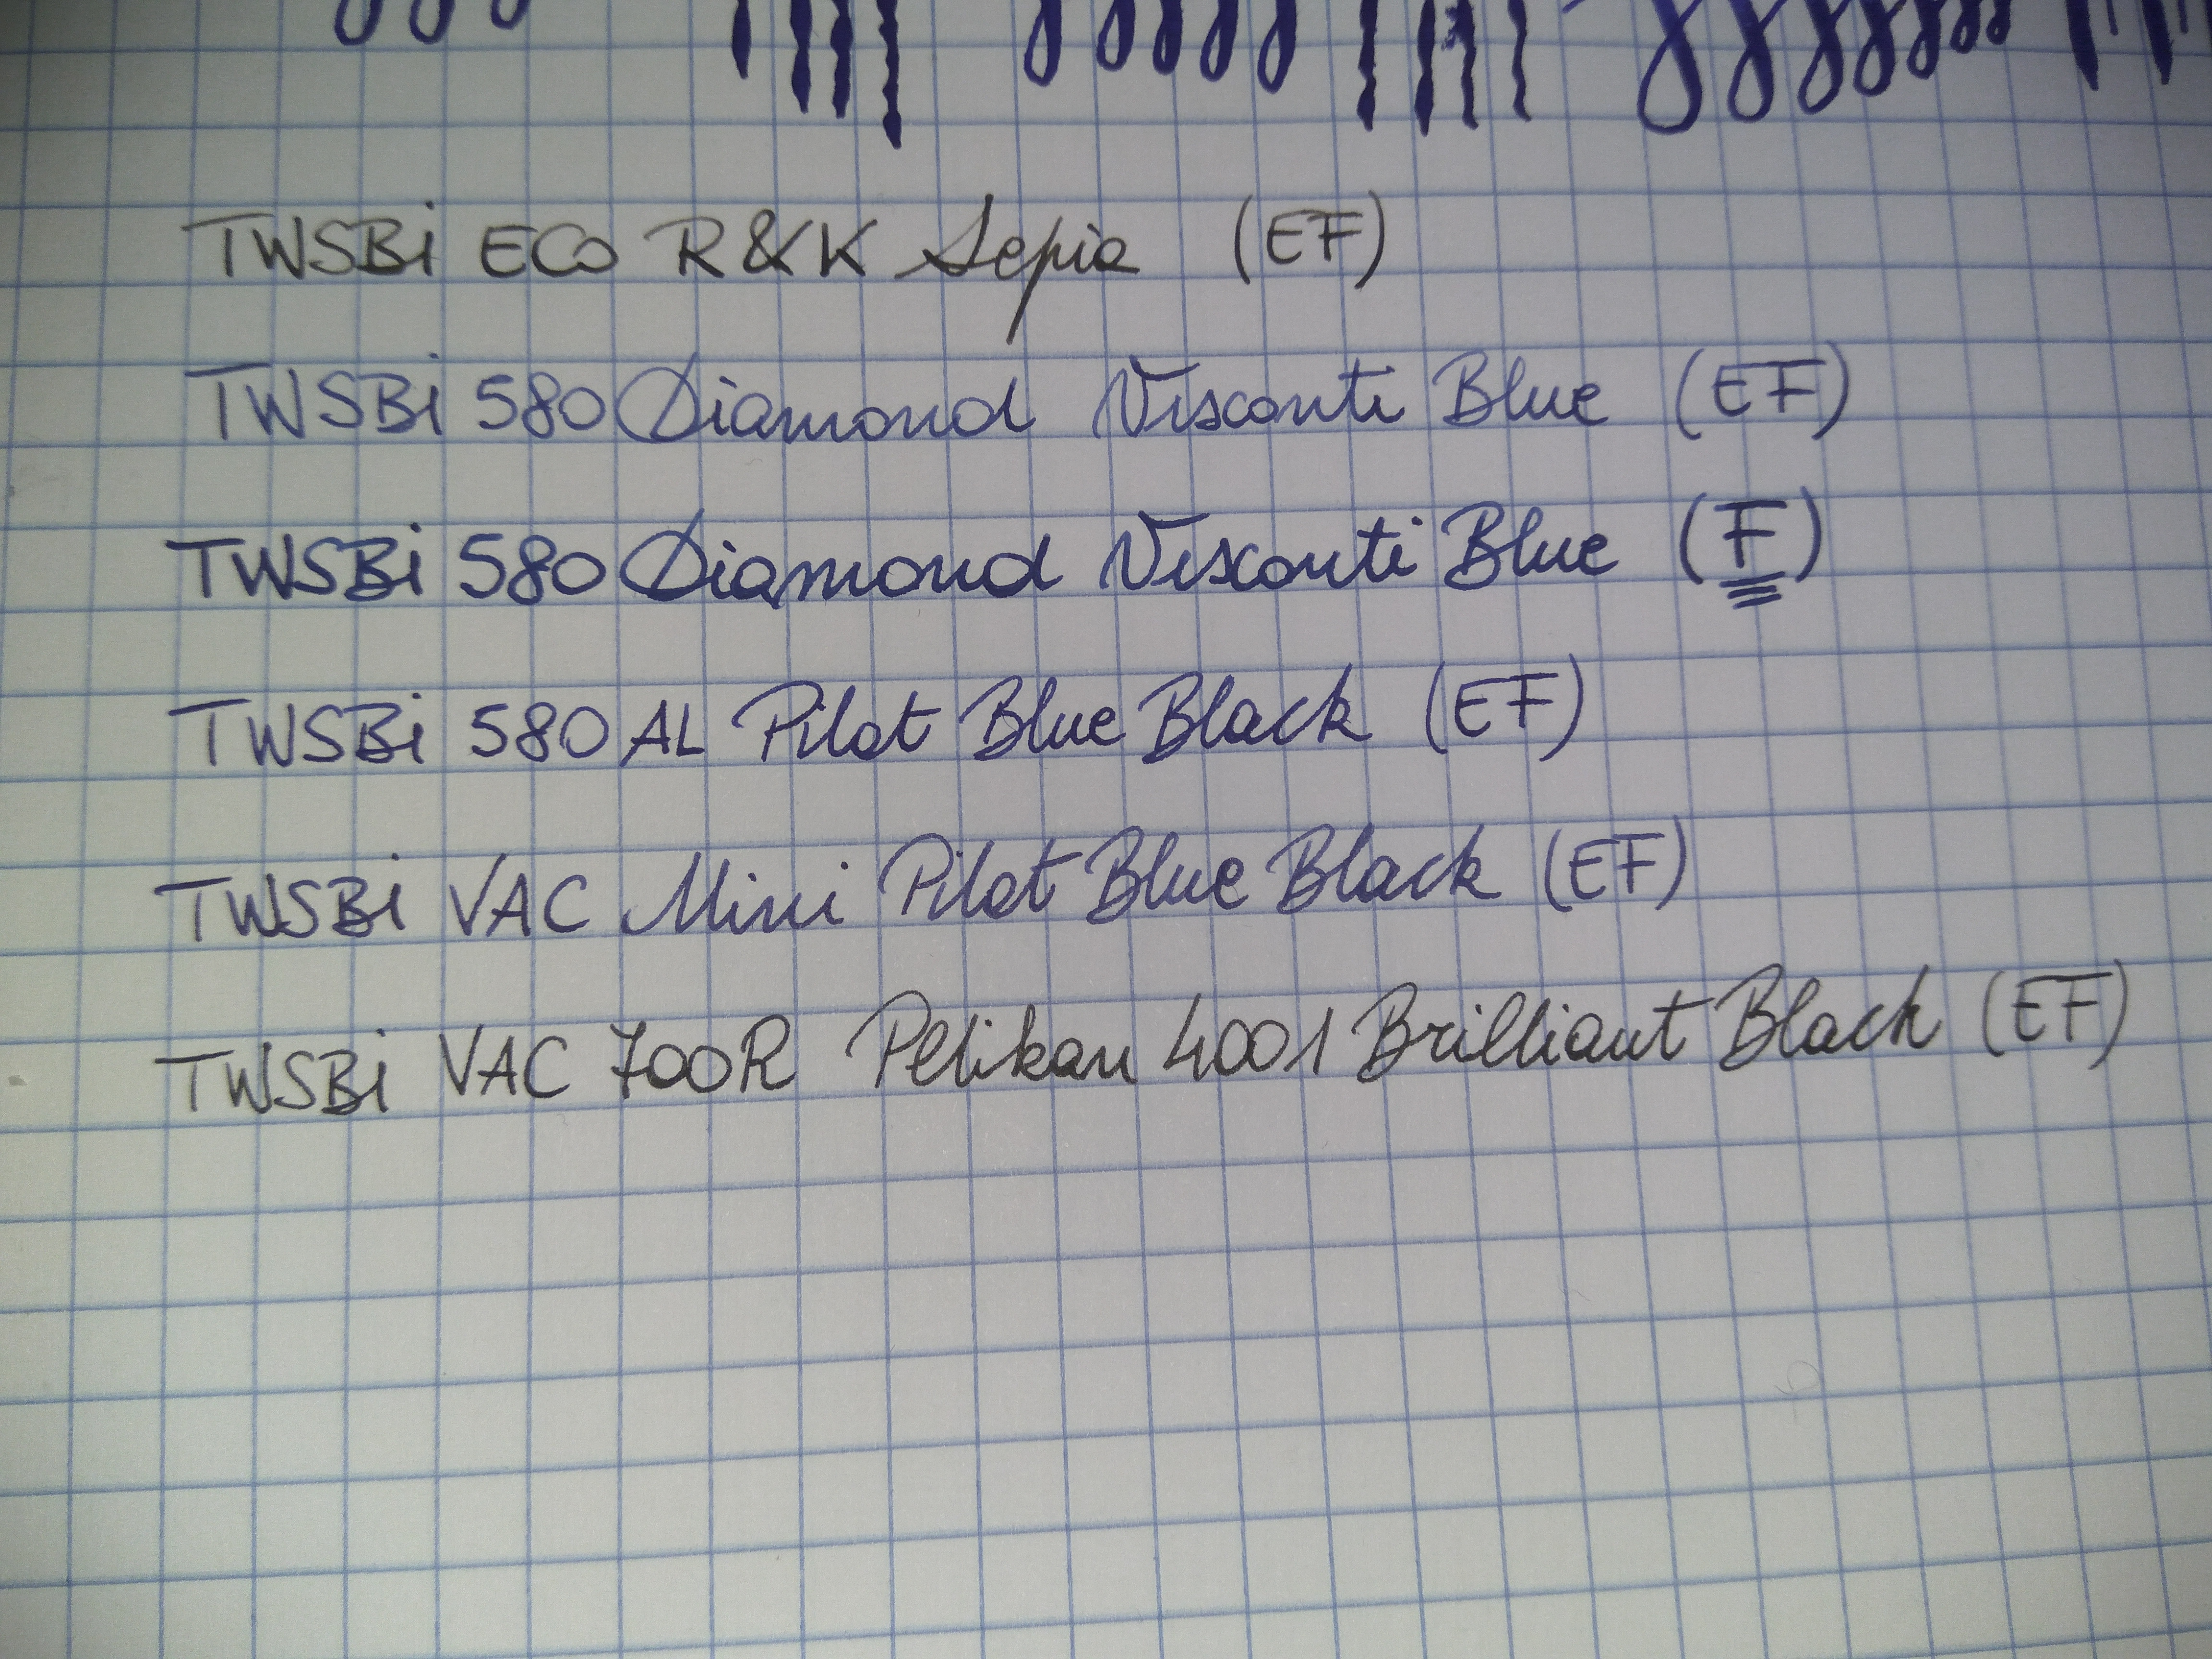 TWSBi ECO R&K Sepia (EF)
TWSBi 580 Diamond Visconti Blue (EF)
TWSBi 580 Diamond Visconti Blue (F)
TWSBi 580 AL Pilot Blue Black (EF)
TWSBi VAC Mini Pilot Blue Black (EF)
TWSBi VAC 700R Pelikan 4001 Brilliant Black (EF)